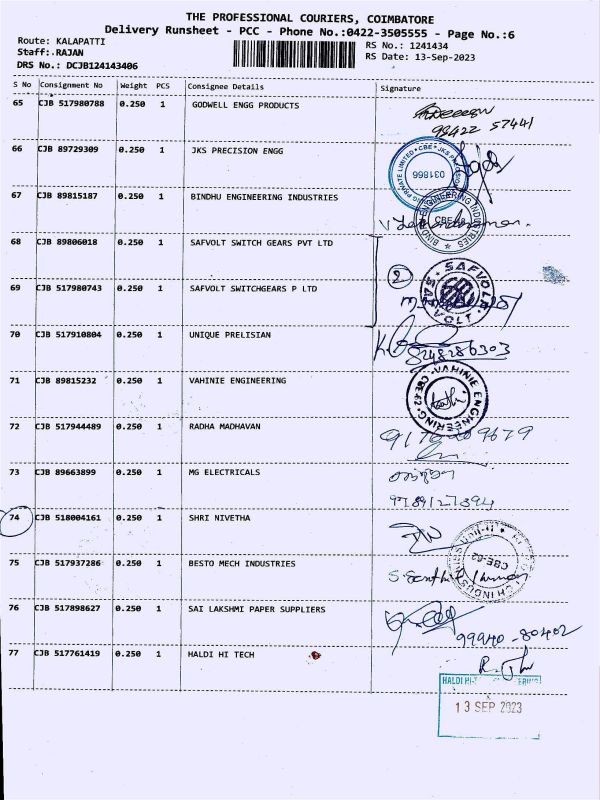 THE PROFESSIONAL COURIERS, COIMBATORE
Delivery Runsheet - PCC - Phone No.:0422-3505555 - Page No.:6
Route: KALAPATTI RS No.: 1241434
Staff:.RAJAN RS Date: 13-Sep-2023
DRS No.: DCJB124143406
S No Consignment No Weight PCS Consignee Details Signature
65 CJB 517980788 0.250 1 GODWELL ENGG PRODUCTS
98422 57441
66 CJB 89729309 0.250 1 JKS PRECISION ENGG
PRIVATE LIMITED * CBE * JKS
031866
67 CJB 89815187 0.250 1 BINDHU ENGINEERING INDUSTRIES
BINDHU ENGINEERING INDUSTRIES
CBE-48
68 CJB 89806018 0.250 1 SAFVOLT SWITCH GEARS PVT LTD
2
SAFVOLT
69 CJB 517980743 0.250 1 SAFVOLT SWITCHGEARS P LTD
70 CJB 517910804 0.250 1 UNIQUE PRELISIAN
8248286303
71 CJB 89815232 0.250 1 VAHINIE ENGINEERING
VAHINIE ENGINEERING * CBE-62
72 CJB 517944489 0.250 1 RADHA MADHAVAN
73 CJB 89663899 0.250 1 MG ELECTRICALS
9789127894
74 CJB 518004161 0.250 1 SHRI NIVETHA
75 CJB 517937286 0.250 1 BESTO MECH INDUSTRIES
CBE-62
76 CJB 517898627 0.250 1 SAI LAKSHMI PAPER SUPPLIERS
99940-80402
77 CJB 517761419 0.250 1 HALDI HI TECH
HALDI HI-T
13 SEP 2023